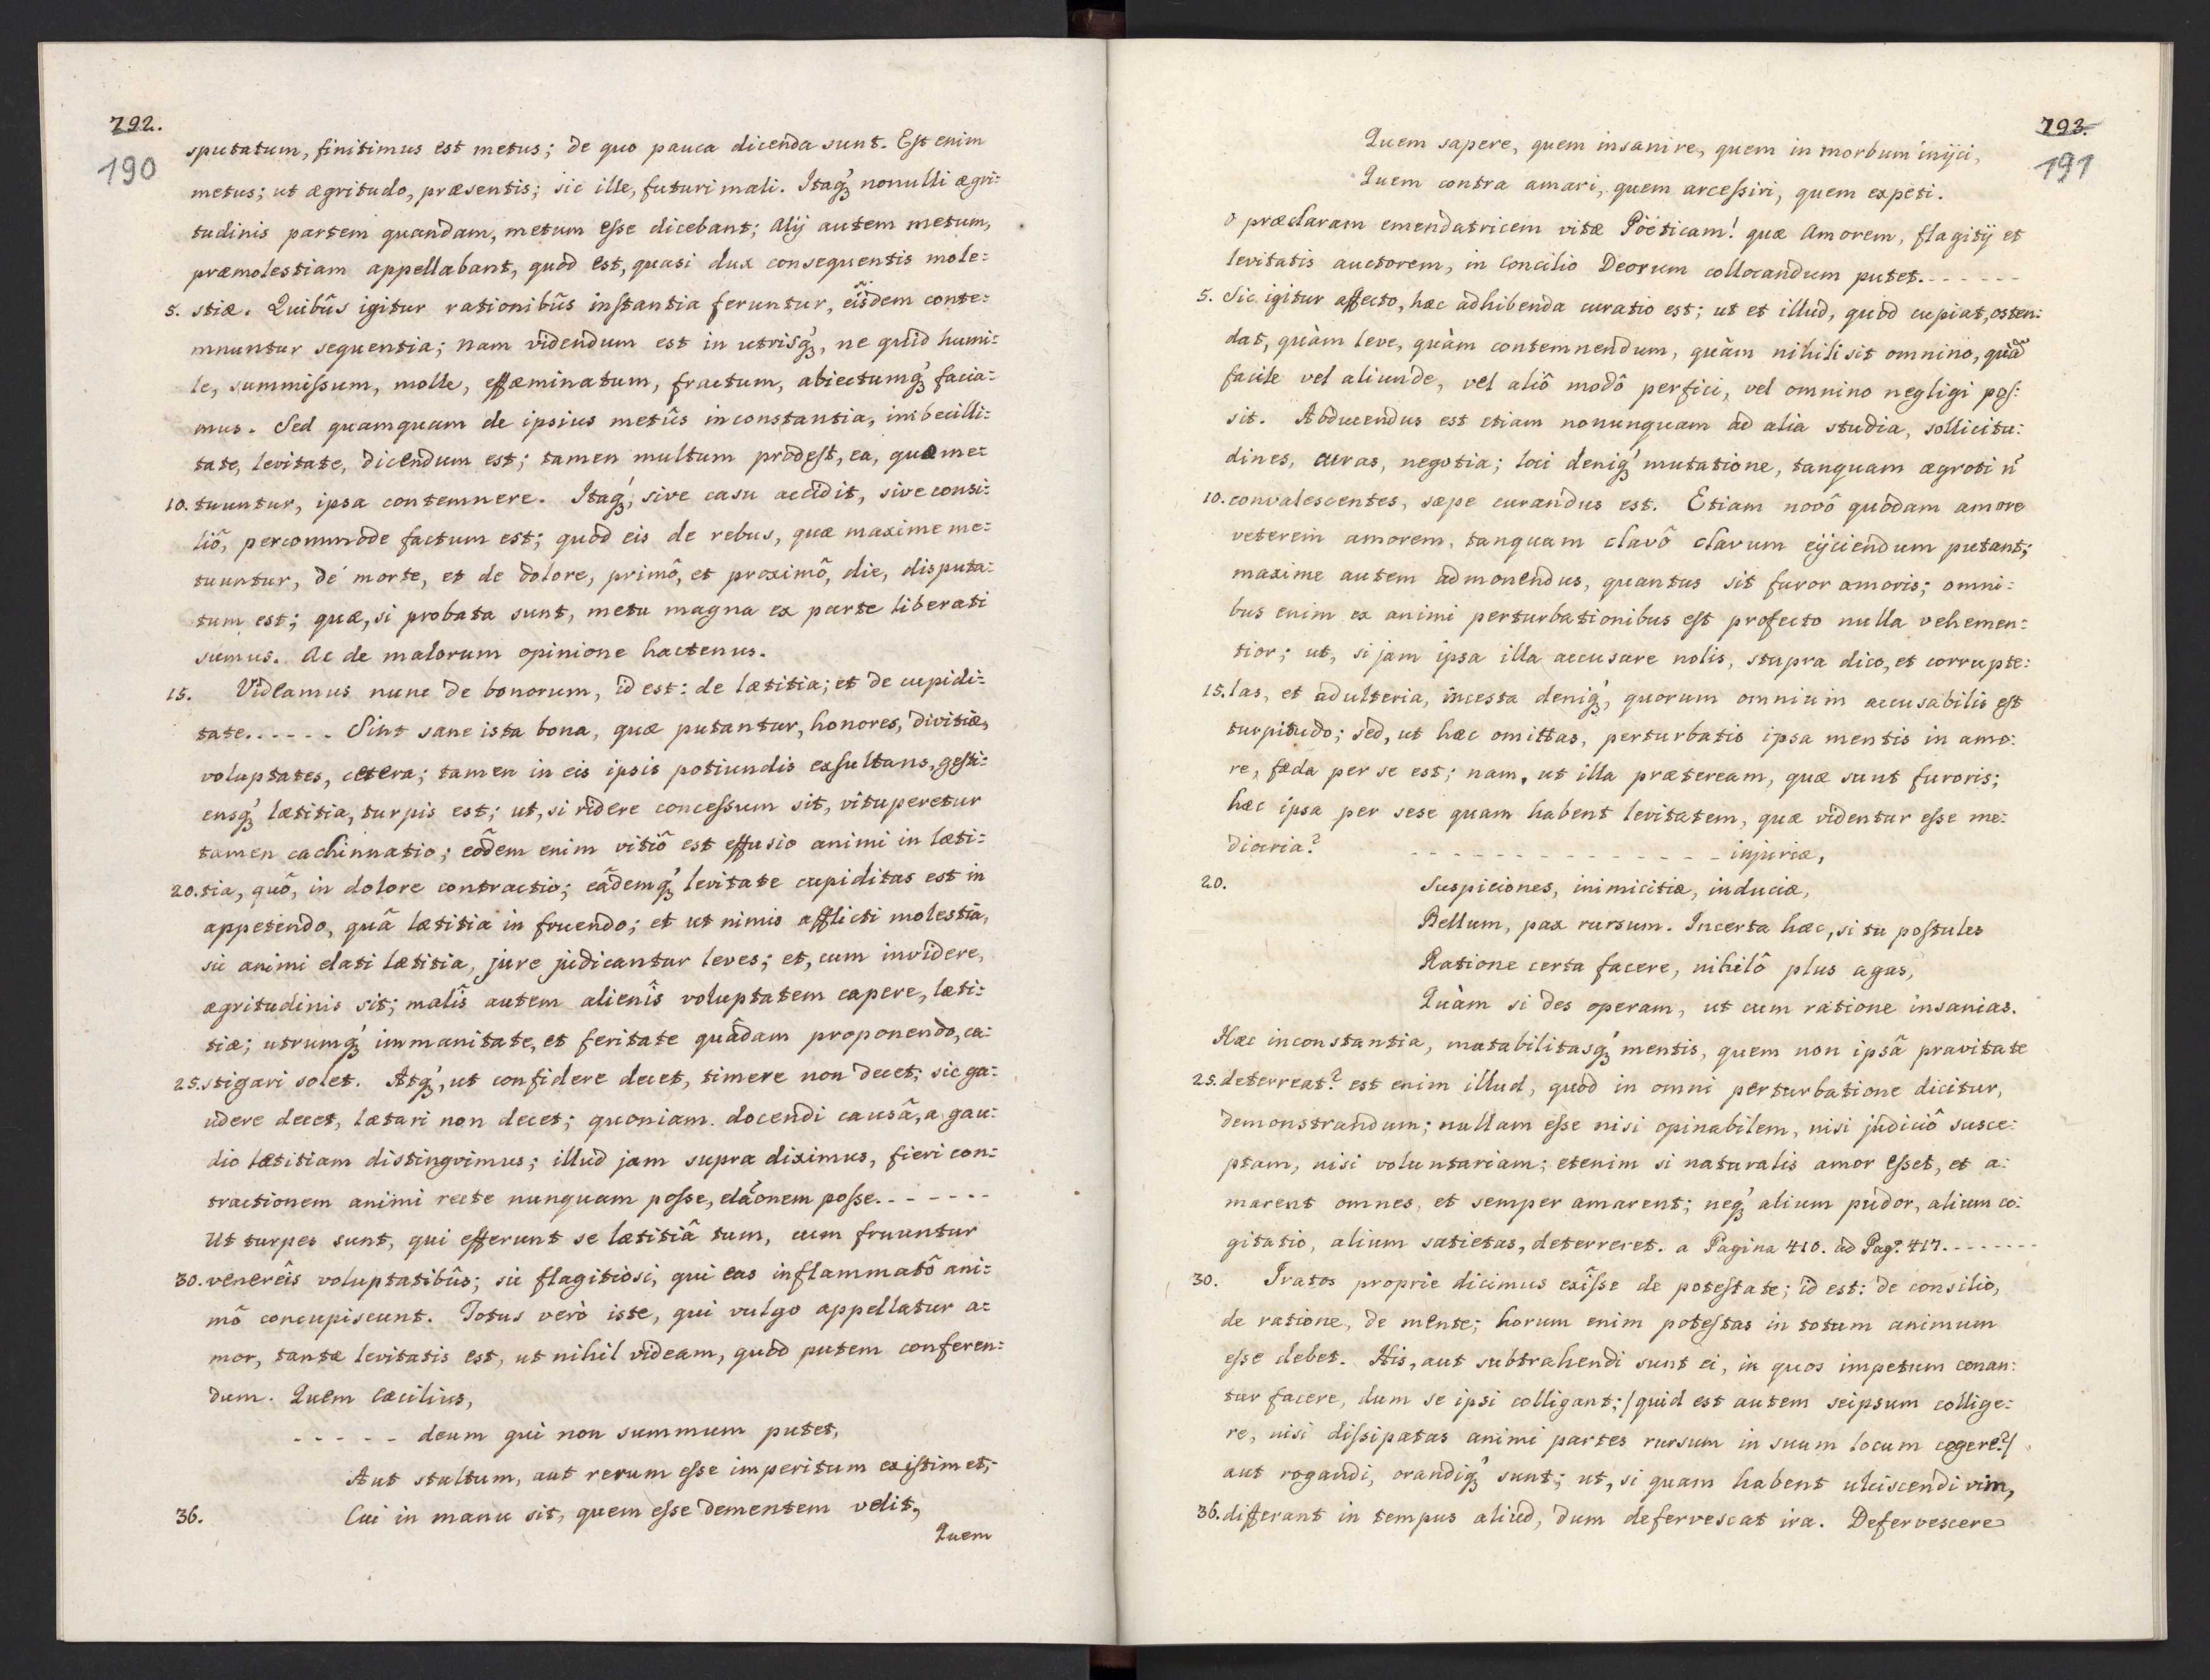 792.
190
sputatum, finitimus est metus; de quo pauca dicenda sunt. Est enim
metus; ut ægritudo, præsentis; sic ille, futuri mali. Itaq́ꝫ nonulli ægri:
tudinis partem quandam, metum esse dicebant; Alij autem metum,
præmolestiam appellabant, quòd est, quasi dux consequentis mole:
5. stiæ. Quibûs igitur rationibûs instantia feruntur, eîsdem conte:
mnuntur sequentia; nam videndum est in utrisq́ꝫ, ne quid humi:
le, summissum, molle, effæminatum, fractum, abiectumq́ꝫ facia:
mus. Sed quamquam de ipsius metûs inconstantia, imbecilli:
tate, levitate, dicendum est; tamen multum prodest, ea, quæ me:
10. tuuntur, ipsa contemnere. Itaq́ꝫ, sive casu accidit, sive consi:
liô, percommode factum est; quòd eis de rebus, quæ maxime me:
tuuntur, de morte, et de dolore, primô, et proximô, die, disputa:
tum est; quæ, si probata sunt, metu magna ex parte liberati
sumus. Ac de malorum opinione hactenus.
15. Videamus nunc de bonorum, id est: de lætitia; et de cupidi:
tate. - - - - - Sint sane ista bona, quæ putantur, honores, divitiæ,
voluptates, cetera; tamen in eis ipsis potiundis exsultans, gesti:
ensq́ꝫ lætitia, turpis est; ut, si ridere concessum sit, vituperetur
tamen cachinnatio; eôdem enim vitiô est effusio animi in læti:
20. tia, quô, in dolore contractio; eâdemq́ꝫ levitate cupiditas est in
appetendo, quâ lætitia in fruendo; et ut nimis afflicti molestia,
sic animi elati lætitia, jure judicantur leves; et, cum invidere,
ægritudinis sit; malîs autem alienîs voluptatem capere, læti:
tiæ; utrumq́ꝫ immanitate, et feritate quâdam proponendo, ca:
25. stigari solet. Atq́ꝫ, ut confidere decet, timere non decet; sic ga:
udere decet, lætari non decet; quoniam docendi causâ, a gau:
dio lætitiam distinguimus; illud jam supra diximus, fieri con:
tractionem animi recte nunquam posse, elaõnem posse. - - - - - - -
Ut turpes sunt, qui efferunt se lætitiâ tum, cum fruuntur
30. venereîs voluptatibûs; sic flagitiosi, qui eas inflammatô ani:
mô concupiscunt. Totus verò iste, qui vulgo appellatur a:
mor, tantæ levitatis est, ut nihil videam, quòd putem conferen:
dum. Quem Cæcilius,
- - - - - deum qui non summum putet,
Aut stultum, aut rerum esse imperitum existimet;
36. Cui in manu sit, quem esse dementem velit,
Quem
793.
191
Quem sapere, quem insanire, quem in morbum inijci,
Quem contra amari, quem arcessiri, quem expeti.
O præclaram emendatricem vitæ Pöeticam! quæ Amorem, flagitij et
levitatis auctorem, in Concilio Deorum collocandum putet. - - - - - -
5. Sic igitur affecto, hæc adhibenda curatio est; ut et illud, quòd cupiat, osten:
dat, quàm leve, quàm contemnendum, quàm nihili sit omnino, quã
facile vel aliunde, vel aliô modô perfici, vel omnino negligi pos:
sit. Abducendus est etiam nonunquam ad alia studia, sollicitu:
dines, curas, negotia; loci deniq́ꝫ mutatione, tanquam ægroti ñ
10. convalescentes, sæpe curandus est. Etiam novô quodam amore
veterem amorem, tanquam clavô clavum eijciendum putant;
maxime autem admonendus, quantus sit furor amoris; omni:
bus enim ex animi perturbationibus est profecto nulla vehemen:
tior; ut, si jam ipsa illa accusare nolis, stupra dico, et corrupte:
15. las, et adulteria, incesta deniq́ꝫ, quorum omnium accusabilis est
turpitudo; sed, ut hæc omittas, perturbatio ipsa mentis in amo:
re, fæda per se est; nam, ut illa præteream, quæ sunt furoris;
hæc ipsa per sese quam habent levitatem, quæ videntur esse me:
diocria? - - - - - - - - - - - - - - injuriæ,
20. Suspiciones, inimicitiæ, induciæ,
Bellum, pax rursum. Incerta hæc, si tu postules
Ratione certa facere, nihilô plus agas,
Quàm si des operam, ut cum ratione insanias.
Hæc inconstantia, mutabilitasq́ꝫ mentis, quem non ipsâ pravitate
25. deterreat? est enim illud, quòd in omni perturbatione dicitur,
demonstrandum; nullam esse nisi opinabilem, nisi judiciô susce:
ptam, nisi voluntariam; etenim si naturalis amor esset, et a:
marent omnes, et semper amarent; neq́ꝫ alium pudor, alium co:
gitatio, alium satietas, deterreret. a Pagina 410. ad Pag: 417. - - - - - - - -
30. Iratos proprie dicimus exîsse de potestate; id est: de consilio,
de ratione, de mente; horum enim potestas in totum animum
esse debet. His, aut subtrahendi sunt ei, in quos impetum conan:
tur facere, dum se ipsi colligant; /quid est autem seipsum collige:
re, nisi dissipatas animi partes rursum in suum locum cogere?/
aut rogandi, orandiq́ꝫ sunt; ut, si quam habent ulciscendi vim,
36. differant in tempus aliud, dum defervescat ira. Defervescere